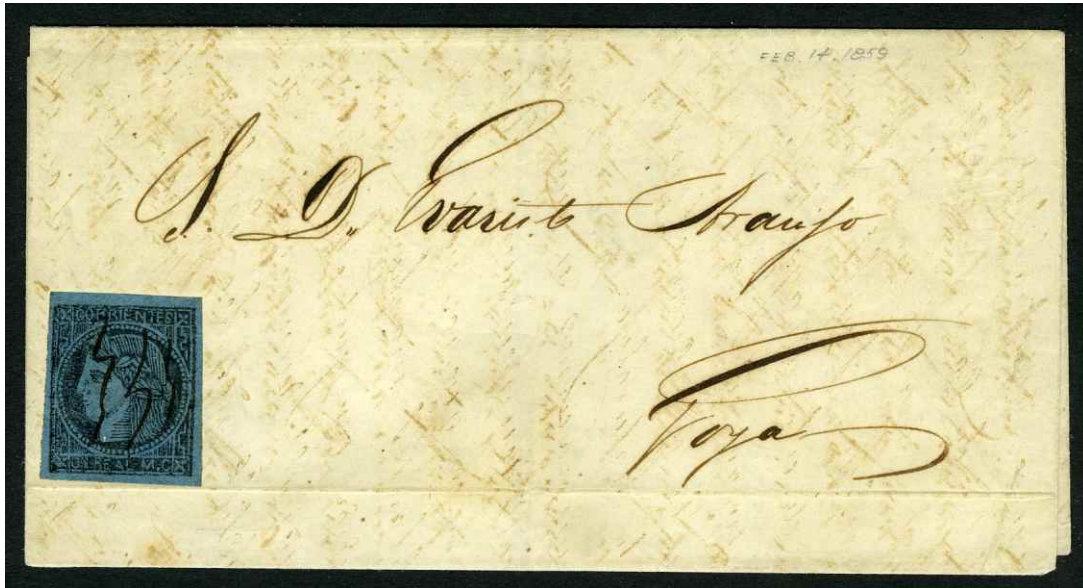 FEB. 14. 1859
S. D. Evaristo Araujo
Goya
CORRIENTES
UN REAL M.C.